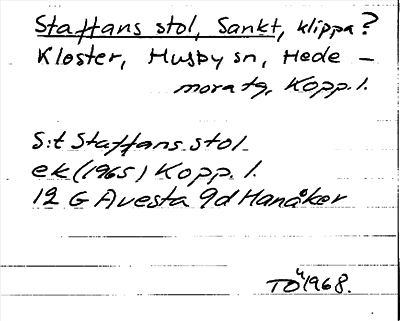 Staffans stol, Sankt, klippa?
Kloster, Husby sn, Hede-
mora tg, Kopp. l.
S:t Staffans stol
ek (1965) Kopp. l.
12 G Avesta 9d Hanåker
TÖ 1968.